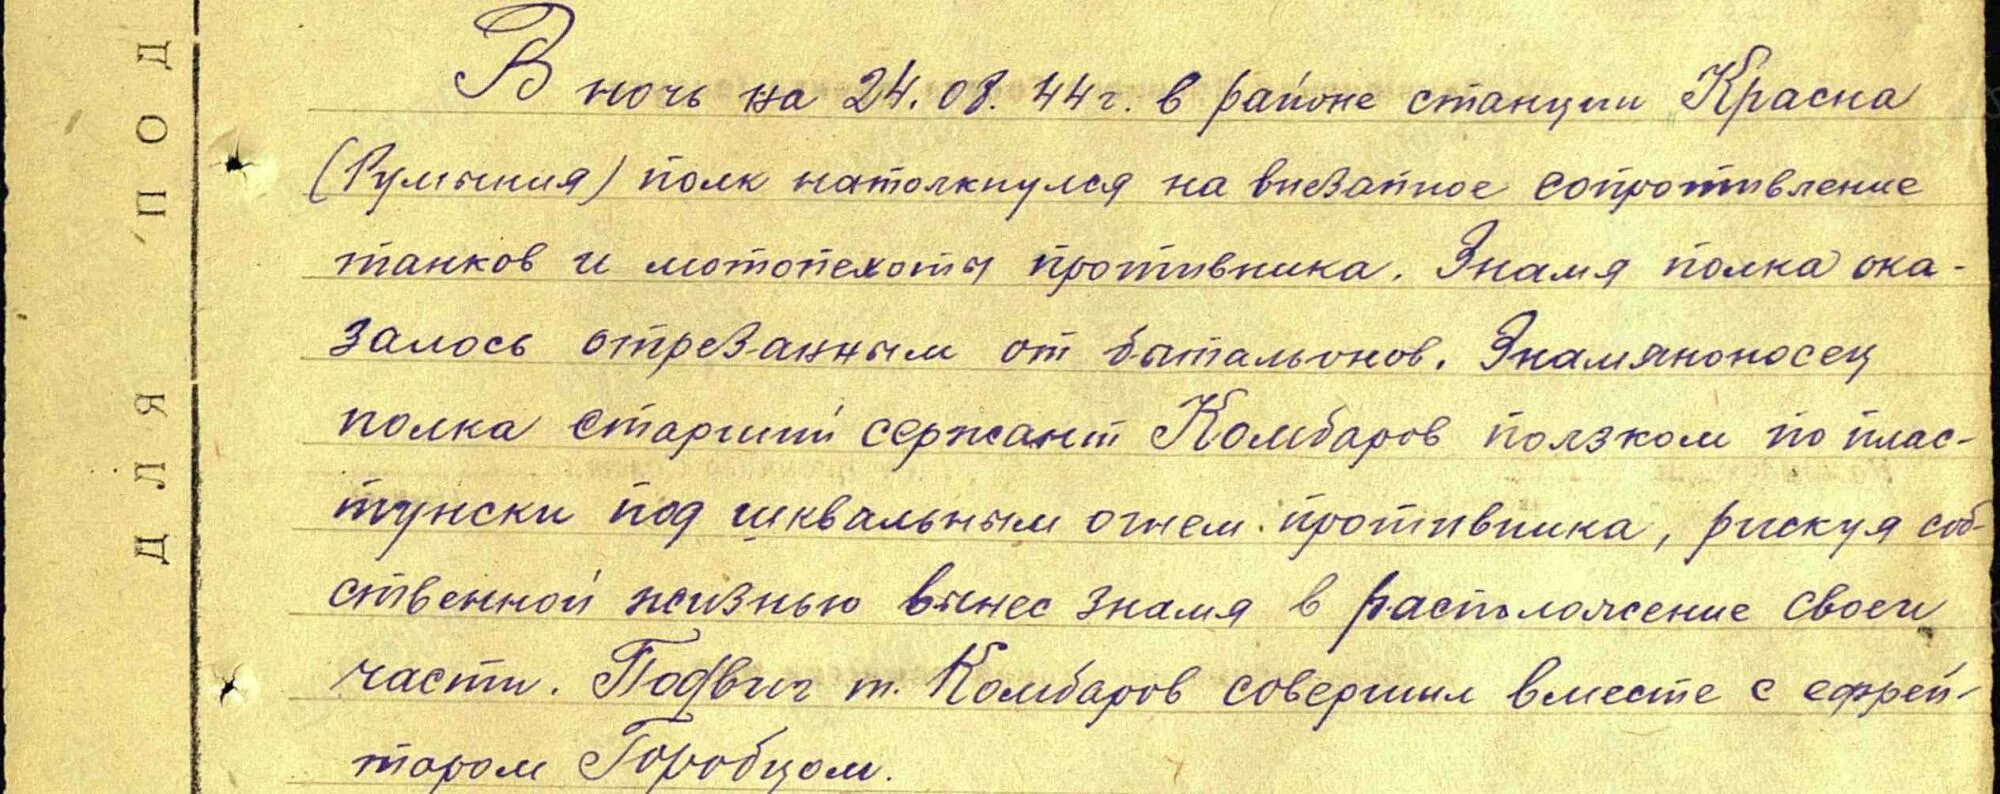 В ночь на 24.08.44г. в районе станции Красна
(Румыния) полк натолкнулся на внезапное сопротивление
танков и мотопехоты противника. Знамя полка ока-
залось отрезанным от батальонов. Знамяносец
полка старший сержант Комбаров ползком по плас-
тунски под шквальным огнем противника, рискуя соб-
ственной жизнью вынес знамя в расположение своей
части. Подвиг т. Комбаров совершил вместе с ефрей-
тором Горобцом.
ДЛЯ ПОД